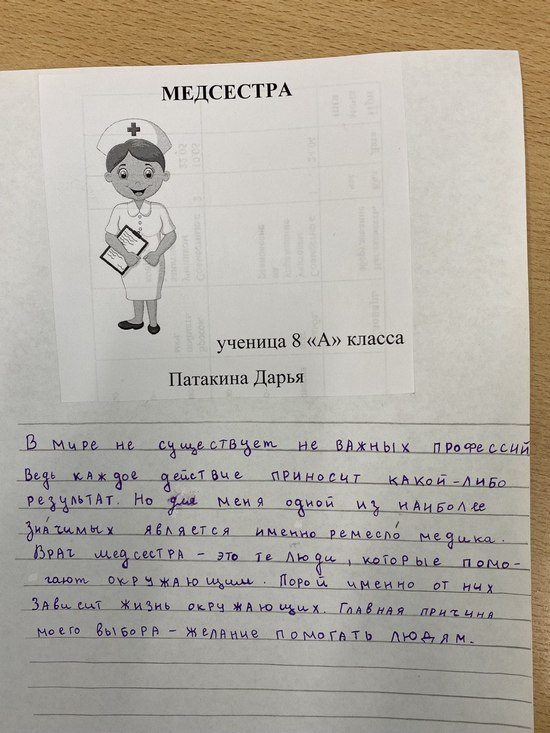 МЕДСЕСТРА
ученица 8 «А» класса
Патакина Дарья
В мире не существует не важных профессий
Ведь каждое действие приносит какой-либо
результат. Но для меня одной из наиболее
значимых является именно ремесло медика.
Врач медсестра – это те люди, которые помо-
гают окружающим. Порой именно от них
зависит жизнь окружающих. Главная причина
моего выбора – желание помогать людям.